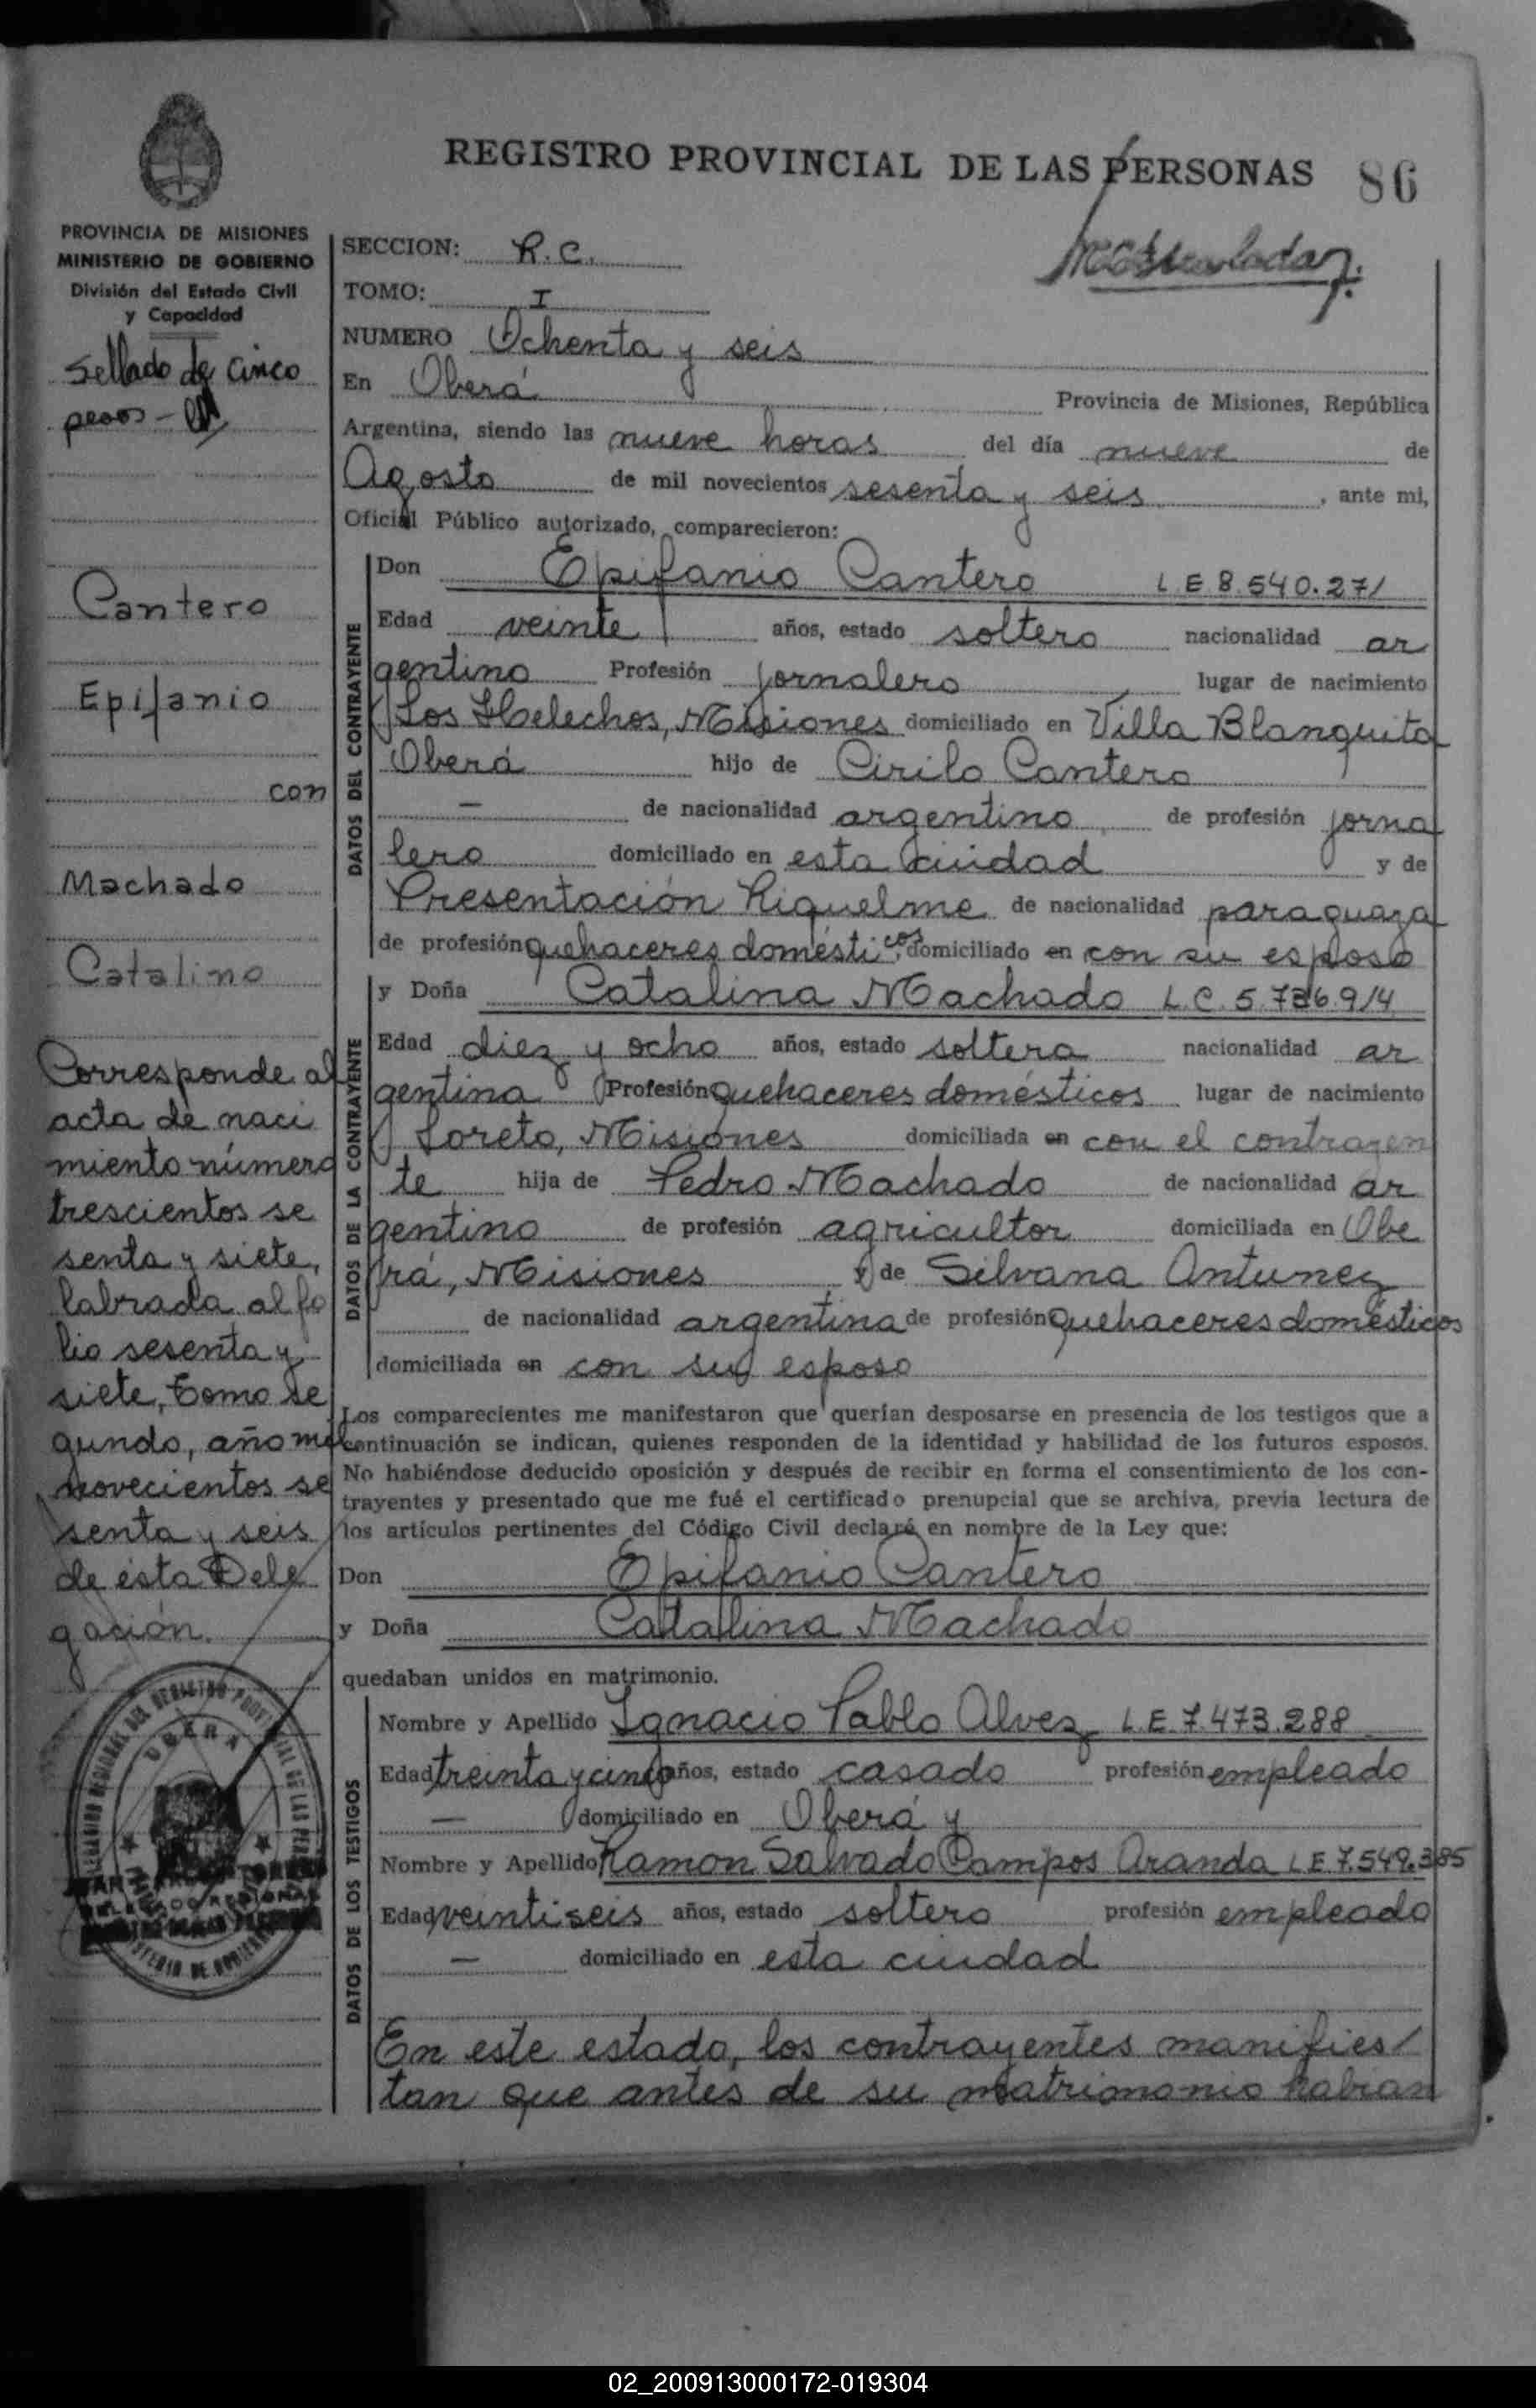 REGISTRO PROVINCIAL DE LAS PERSONAS 86
PROVINCIA DE MISIONES
MINISTERIO DE GOBIERNO
División del Estado Civil
y Capacidad
Sellado de cinco
pesos -
Cantero
Epifanio
con
Machado
Catalina
Corresponde al
acta de naci
miento número
trescientos se
senta y siete,
labrada al fo
lio sesenta y
siete, tomo se
gundo, año mil
novecientos se
senta y seis
de ésta Dele
gación.
OBERA
SECCION: R.C.
TOMO: I
NUMERO Ochenta y seis
En Oberá Provincia de Misiones, República
Argentina, siendo las nueve horas del día nueve de
Agosto de mil novecientos sesenta y seis, ante mi,
Oficial Público autorizado, comparecieron:
DATOS DEL CONTRAYENTE
Don Epifanio Cantero L.E 8.540.271
Edad veinte años, estado soltero nacionalidad ar
gentino Profesión jornalero lugar de nacimiento
Los Helechos, Misiones domiciliado en Villa Blanquita
Oberá hijo de Cirilo Cantero
— de nacionalidad argentino de profesión jorna
lero domiciliado en esta ciudad y de
Presentación Riquelme de nacionalidad paraguaya
de profesión quehaceres domésticos domiciliado en con su esposo
DATOS DE LA CONTRAYENTE
y Doña Catalina Machado L.C. 5.786.914
Edad diez y ocho años, estado soltera nacionalidad ar
gentina Profesión quehaceres domésticos lugar de nacimiento
Loreto, Misiones domiciliada en con el contrayen
te hija de Pedro Machado de nacionalidad ar
gentino de profesión agricultor domiciliada en Obe
rá, Misiones y de Silvana Antunez
de nacionalidad argentina de profesión quehaceres domésticos
domiciliada en con su esposo
Los comparecientes me manifestaron que querían desposarse en presencia de los testigos que a
continuación se indican, quienes responden de la identidad y habilidad de los futuros esposos.
No habiéndose deducido oposición y después de recibir en forma el consentimiento de los con-
trayentes y presentado que me fué el certificado prenupcial que se archiva, previa lectura de
los artículos pertinentes del Código Civil declaré en nombre de la Ley que:
Don Epifanio Cantero
y Doña Catalina Machado
quedaban unidos en matrimonio.
DATOS DE LOS TESTIGOS
Nombre y Apellido Ignacio Pablo Alvez L.E. 7.473.288
Edad treinta y cinco años, estado casado profesión empleado
— domiciliado en Oberá y
Nombre y Apellido Ramon Salvado Campos Aranda L E 7.549.385
Edad veintiseis años, estado soltero profesión empleado
— domiciliado en esta ciudad
En este estado, los contrayentes manifies
tan que antes de su matrimonio habian
02_200913000172-019304